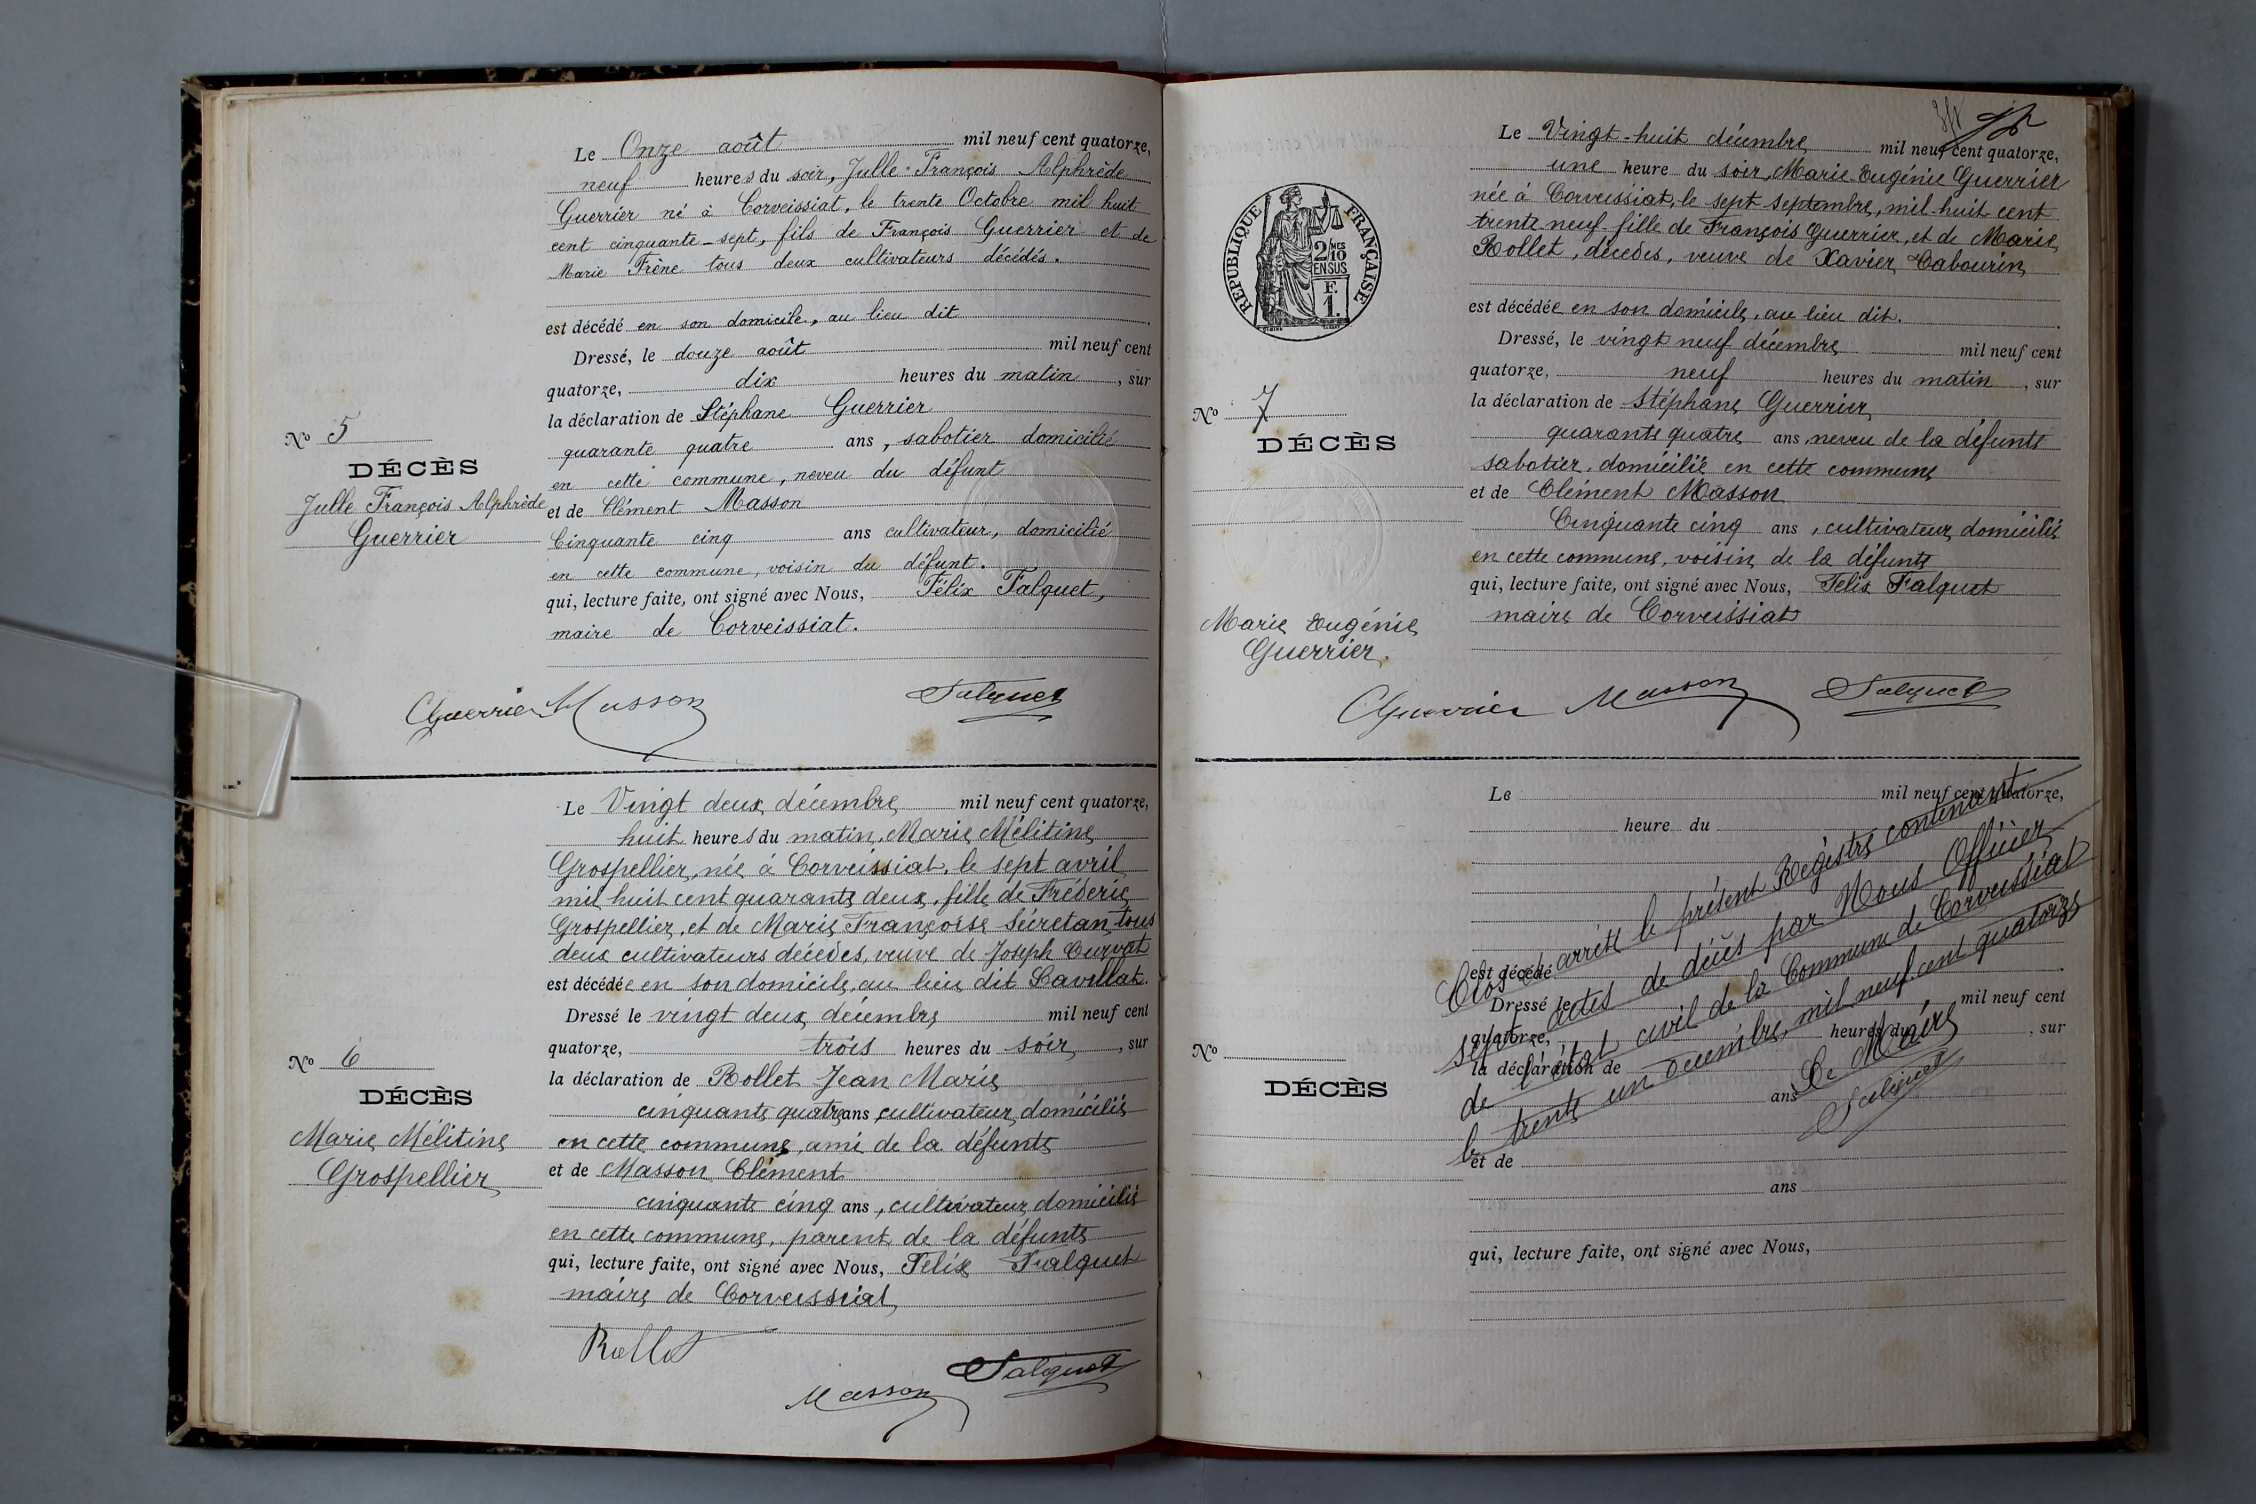 Le Onze août mil neuf cent quatorze,
neuf heures du soir, Julle François Alphrède
Guerrier né à Corveissiat, le trente Octobre mil huit
cent cinquante-sept, fils de François Guerrier et de
Marie Frène tous deux cultivateurs décédés.
est décédé en son domicile, au lieu dit
Dressé, le douze août mil neuf cent
quatorze, dix heures du matin, sur
la déclaration de Stéphane Guerrier
quarante quatre ans, sabotier domicilié
en cette commune, neveu du défunt
et de Clément Masson
Cinquante cinq ans cultivateur, domicilié
en cette commune, voisin du défunt.
qui, lecture faite, ont signé avec Nous, Félix Falquet,
maire de Corveissiat.
No 5
DÉCÈS
Julle François Alphrède
Guerrier
Guerrier Masson Falquet
Le Vingt deux décembre mil neuf cent quatorze,
huit heures du matin, Marie Mélitine
Grospellier, née à Corveissiat, le sept avril
mil huit cent quarante deux, fille de Fréderic
Grospellier, et de Marie Françoise Sécretan tous
deux cultivateurs décédés, veuve de Joseph Curvat
est décédée en son domicile, au lieu dit Lavillat.
Dressé le vingt deux décembre mil neuf cent
quatorze, trois heures du soir, sur
la déclaration de Rollet Jean Marie
cinquante quatre ans cultivateur domicilié
en cette commune, ami de la défunte
et de Masson Clément
cinquante cinq ans, cultivateur domicilié
en cette commune, parent de la défunte
qui, lecture faite, ont signé avec Nous, Félix Falquet
maire de Corveissiat
No 6
DÉCÈS
Marie Mélitine
Grospellier
Rollet
Masson Falquet
Le Vingt-huit décembre mil neuf cent quatorze,
une heure du soir, Marie Eugénie Guerrier
née à Corveissiat, le sept septembre, mil huit cent
trente neuf fille de François Guerrier, et de Marie
Rollet, décédés, veuve de Xavier Cabourin
est décédée en son domicile, au lieu dit.
Dressé, le vingt neuf décembre mil neuf cent
quatorze, neuf heures du matin, sur
la déclaration de Stéphane Guerrier
quarante quatre ans, neveu de la défunte
sabotier, domicilié en cette commune
et de Clément Masson
Cinquante cinq ans, cultivateur domicilié
en cette commune, voisin de la défunte
qui, lecture faite, ont signé avec Nous, Félix Falquet
maire de Corveissiat
RÉPUBLIQUE FRANÇAISE
2/10 MES
EN SUS
F.
1.
No 7
DÉCÈS
Marie Eugénie
Guerrier.
Guerrier Masson Falquet
Le mil neuf cent quatorze,
heure du
est décédé
Dressé le mil neuf cent
quatorze, heures du , sur
la déclaration de
ans
et de
ans
qui, lecture faite, ont signé avec Nous,
No
DÉCÈS
Clos et arrêté le présent Registre contenant
sept actes de décès par Nous Officier
de l'état civil de la Commune de Corveissiat
le trente un décembre, mil neuf cent quatorze
Le Maire
Falquet